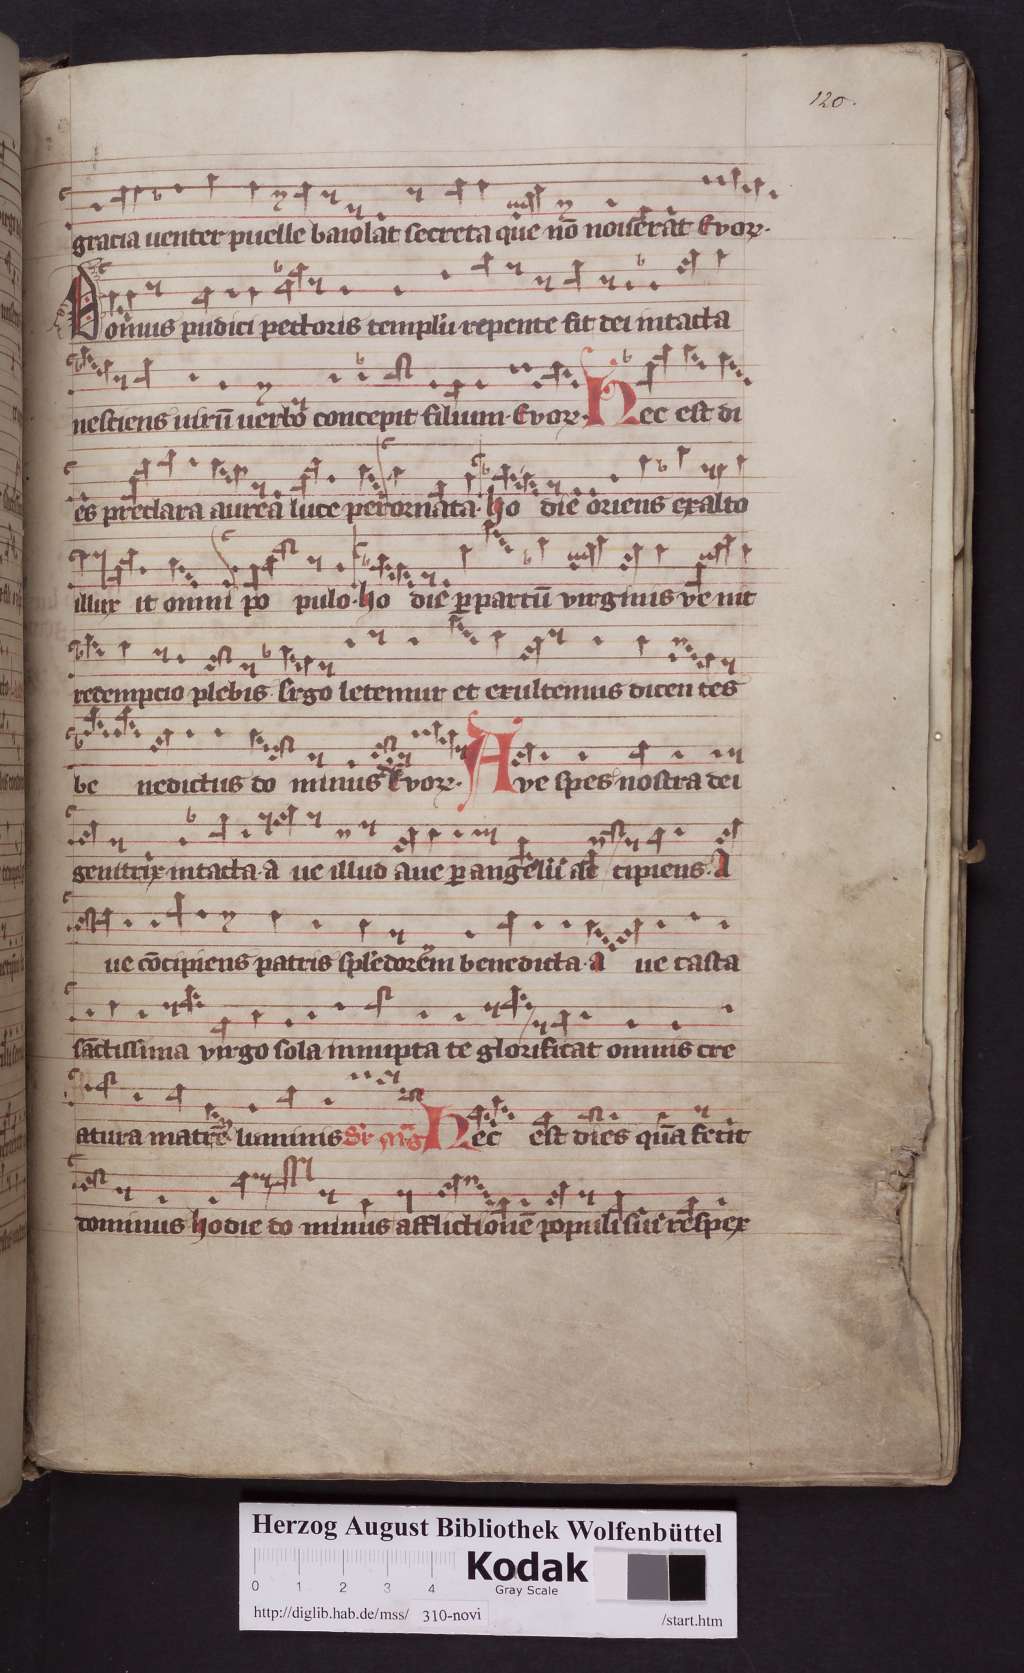 120.
gracia uenter puelle baiolat secreta que nō nouerat Evoꝝ·
Domus pudici pectoris templū repente fit dei intacta
nesciens uirū uerbo concepit filium· Evoꝝ· Hec est di
es preclara aurea luce perornata· ho die oriens exalto
illux it omni po pulo· ho die ꝑ partū virginis ve nit
redempcio plebis· Ergo letemur et exultemus dicen tes
be nedictus do minus Evoꝝ· Ave spes nostra dei
genitrix intacta· a ue illud aue ꝑ angelū ac cipiens· A
ue cōcipiens patris splēdorem benedicta· a ue casta
sāctissima virgo sola innupta te glorificat omnis cre
atura matrē luminis Hec est dies quā fecit
dominus hodie do minus afflictionē populi sui respex
Herzog August Bibliothek Wolfenbüttel
0 1 2 3 4
Kodak
Gray Scale
http://diglib.hab.de/mss/ 310-novi /start.htm